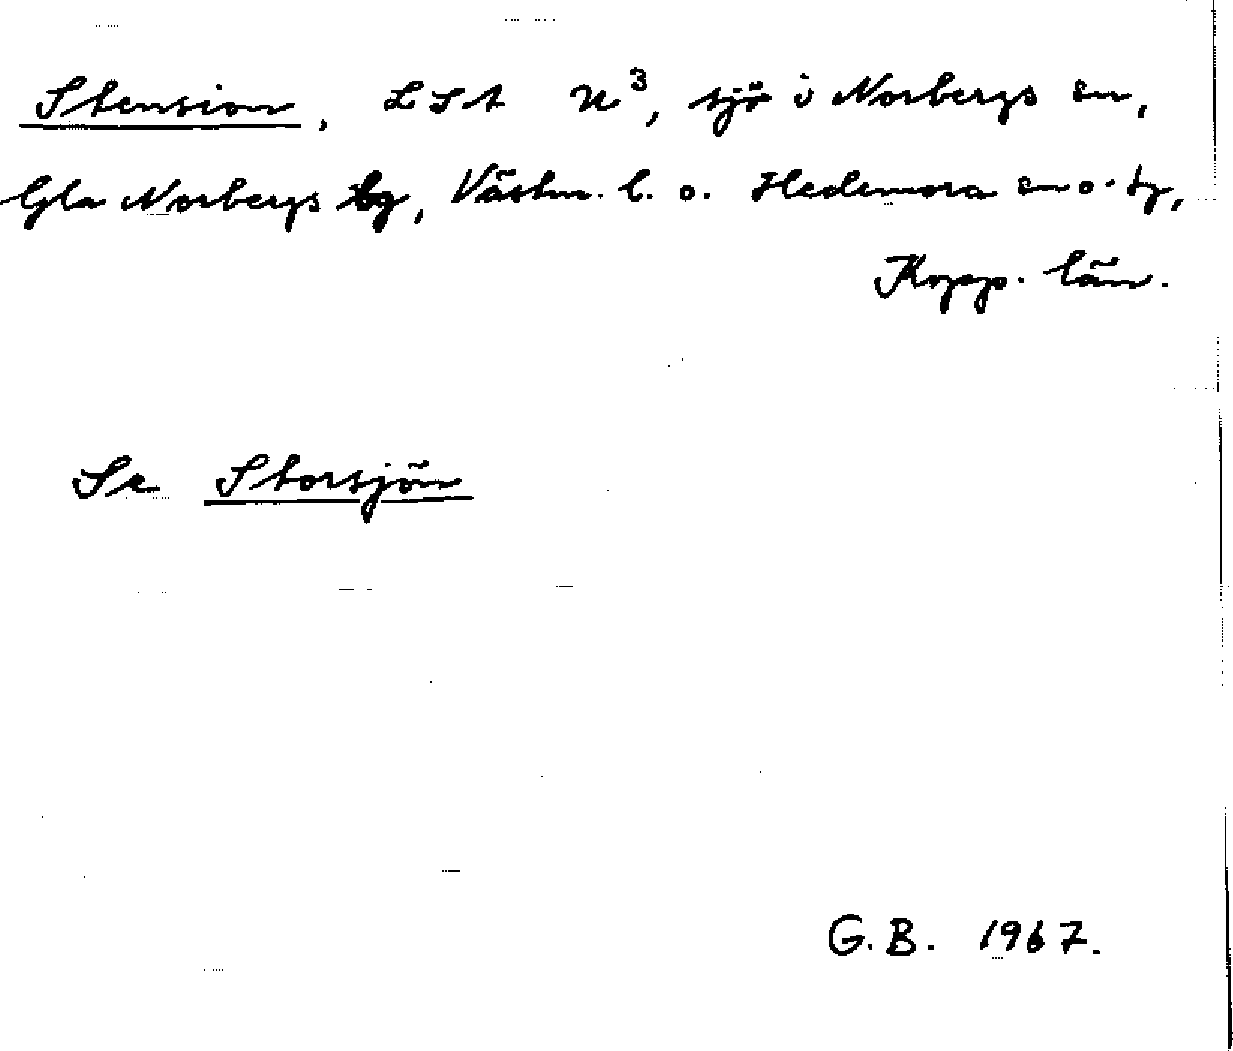 Stension, LSt n³, sjö i Norbergs sn,
Gla Norbergs bg, Västm. l. o. Hedemora sn o. tg,
Kopp. län.
Se Storsjön
G.B. 1967.